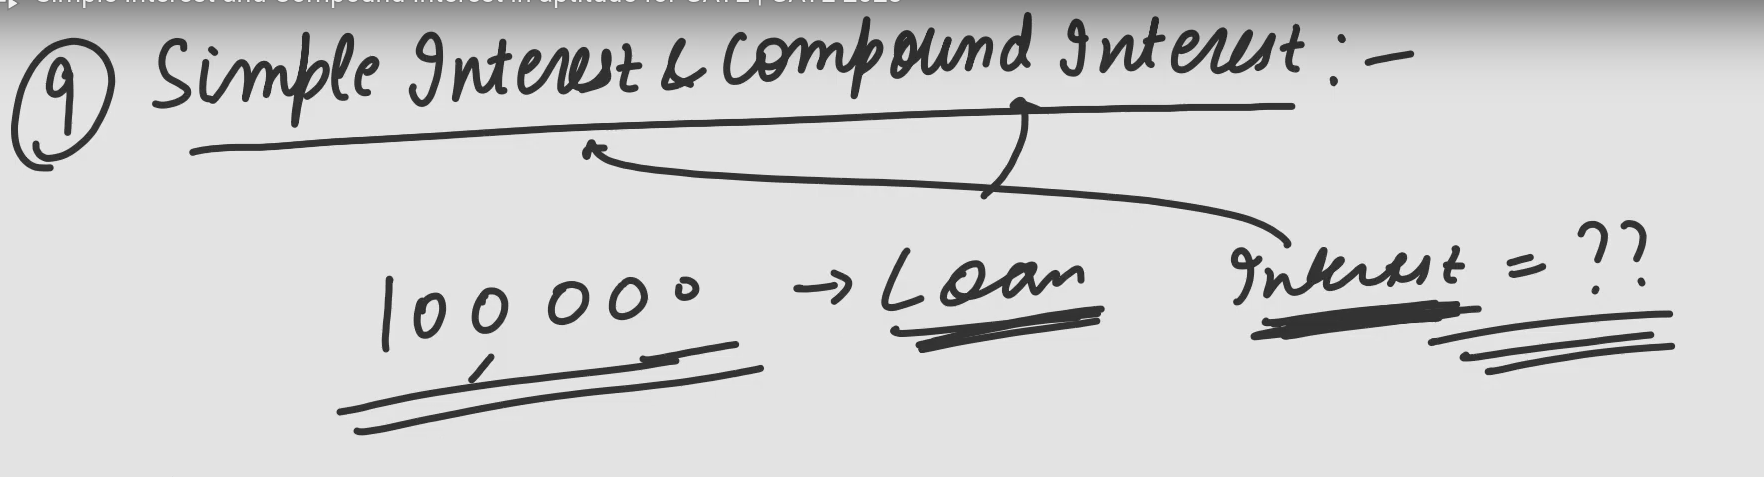 Simple Interest and Compound Interest in aptitude for GATE | GATE 2023
9 Simple Interest & Compound Interest :-
100,000 → Loan Interest = ??